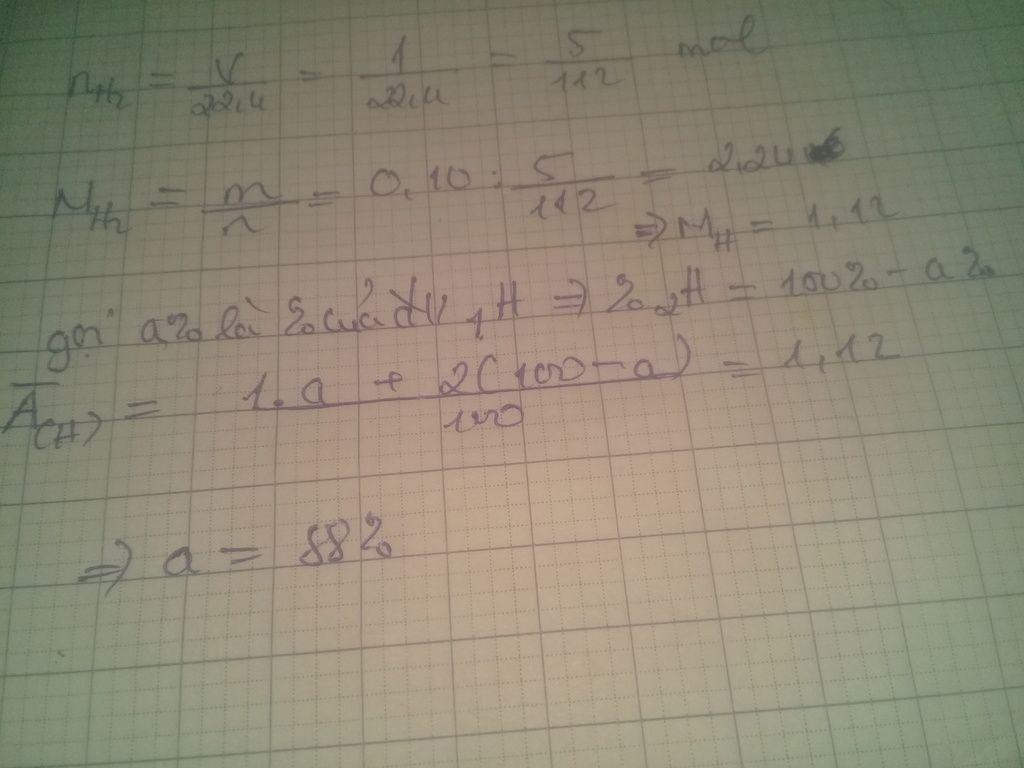 n_H₂ = V/22,4 = 1/22,4 = 5/112 mol
M_H₂ = m/n = 0,10 : 5/112 = 2,24
⇒ M_H = 1,12
gọi a% là % của đV ₁H ⇒ % ₂H = 100% - a%
Ā(H) = (1.a + 2(100-a))/100 = 1,12
⇒ a = 88%